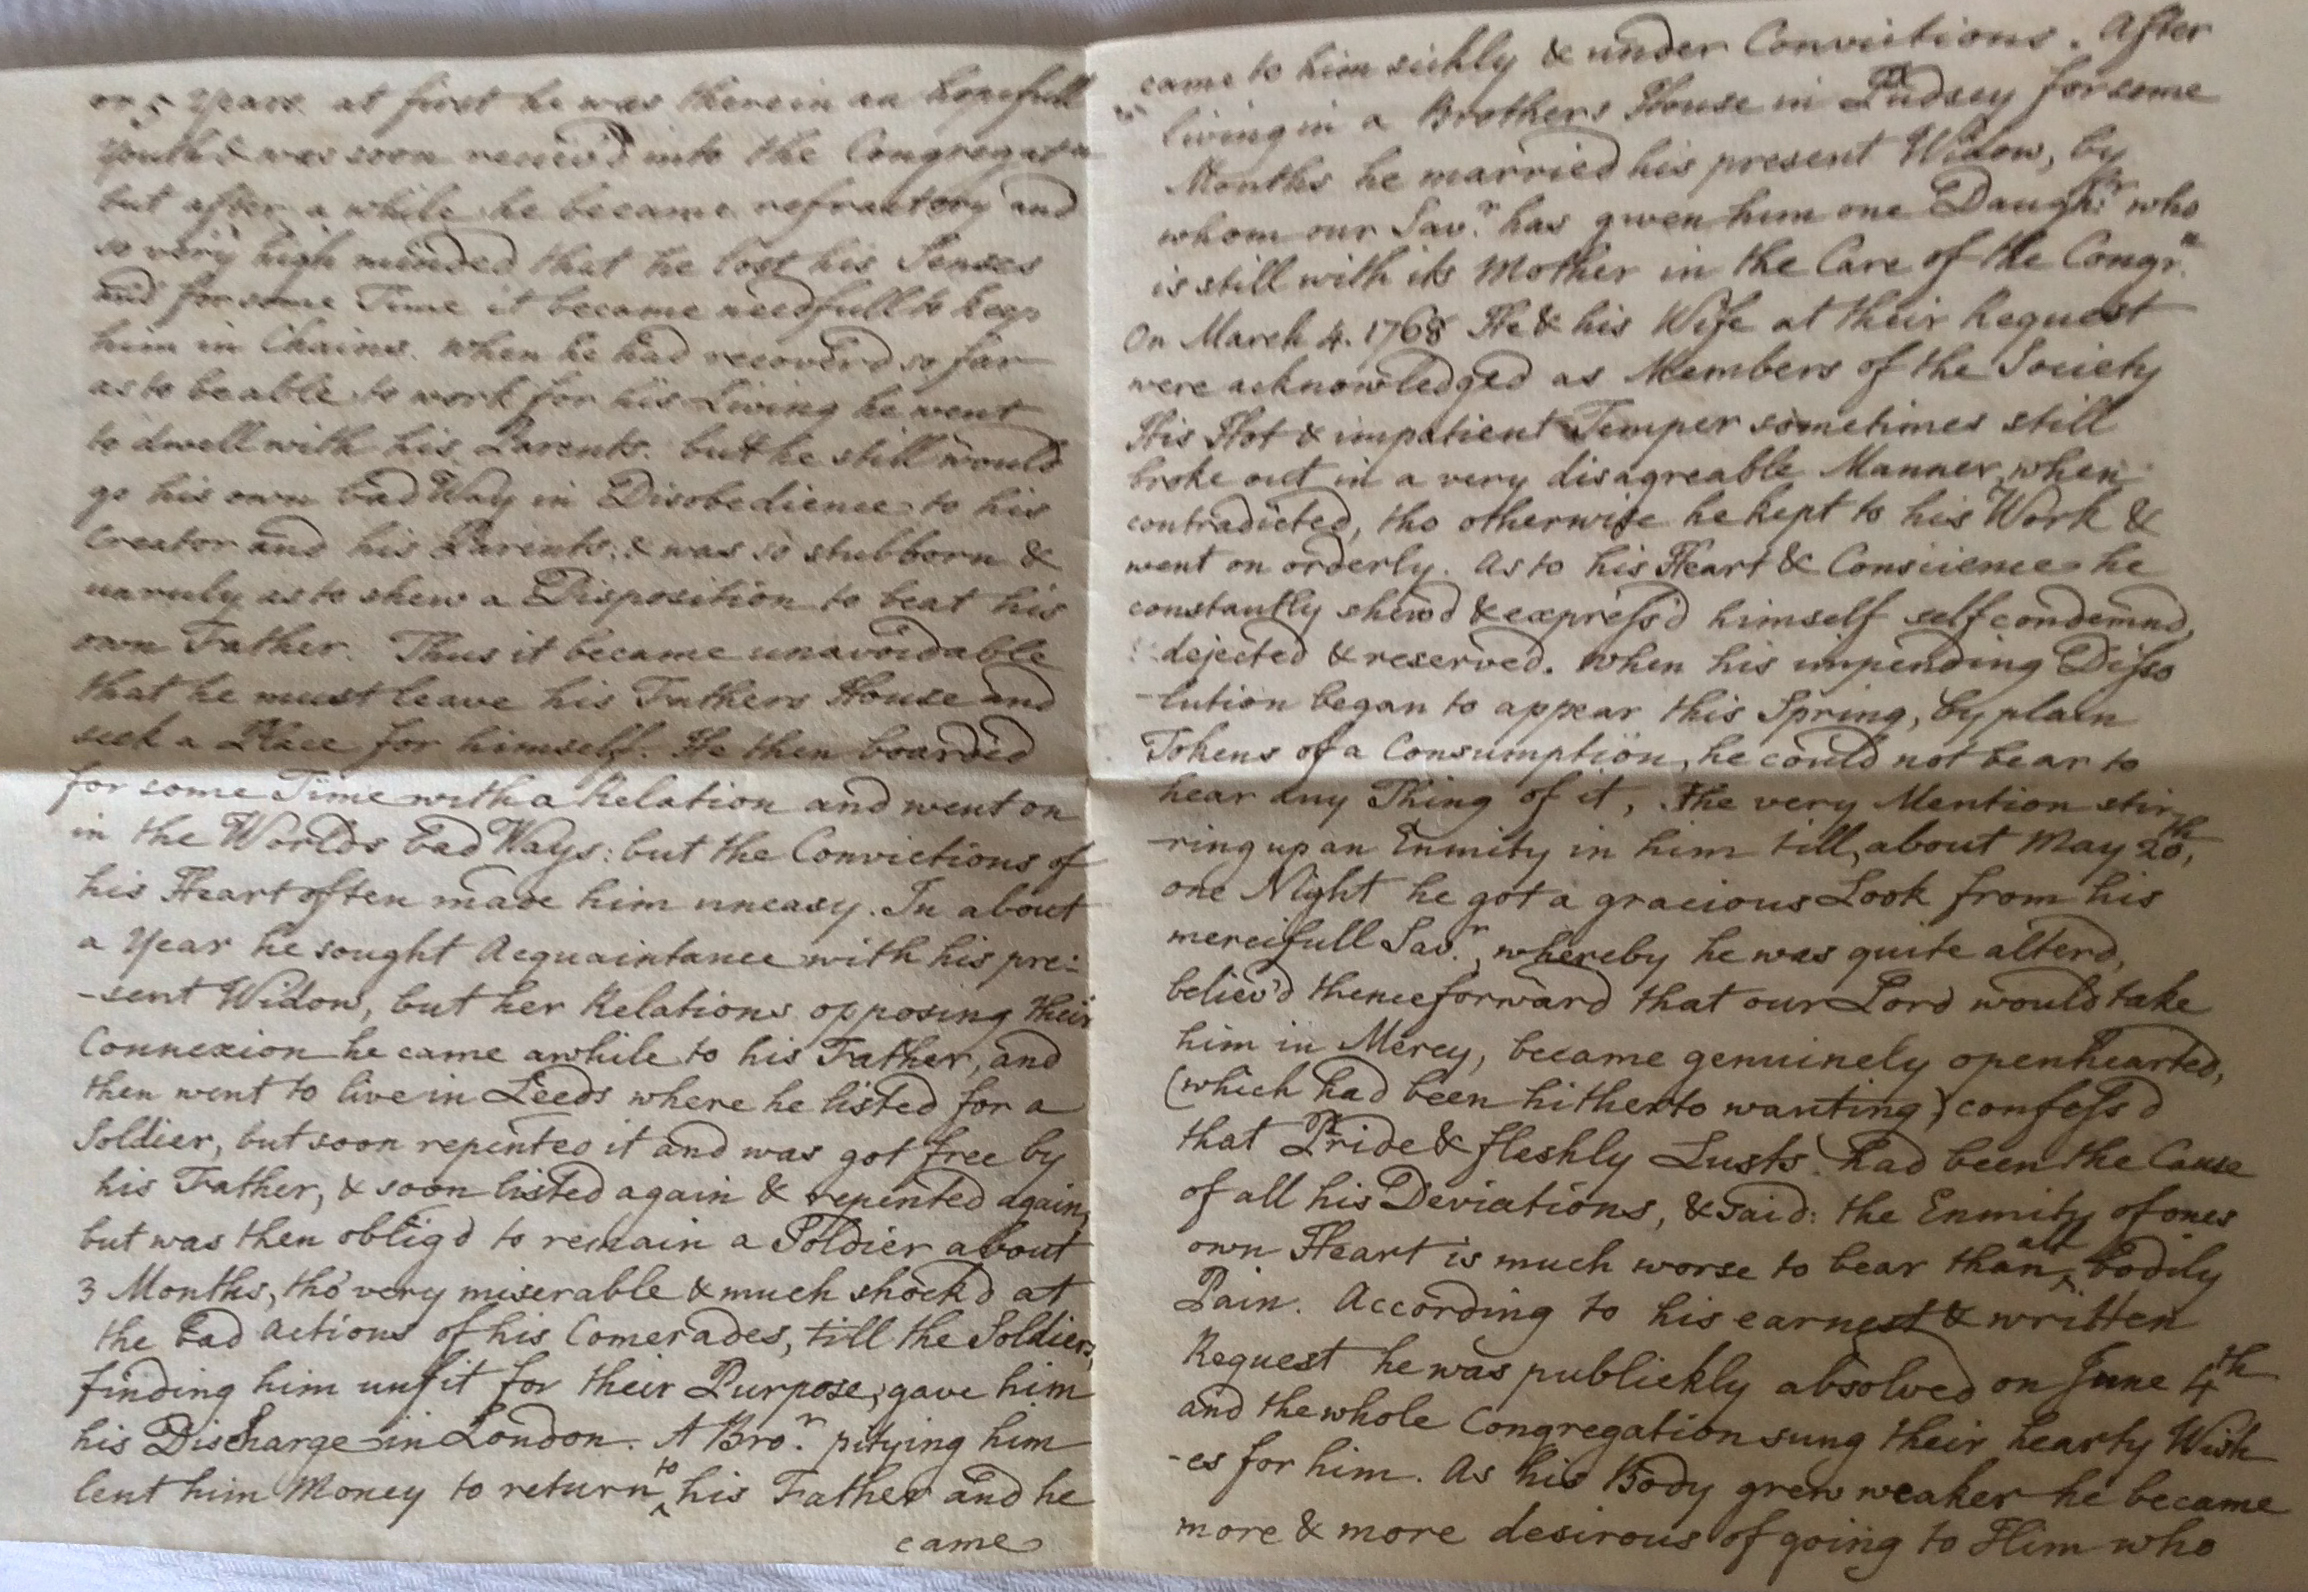 or 5 Years. at first he was therein an hopefull
Youth & was soon receiv'd into the Congregatn
but after a while he became refractory and
so very high minded that he lost his Senses
and for some Time it became needfull to keep
him in Chains. when he had recover'd so far
as to be able to work for his Living he went
to dwell with his Parents. but he still would
go his own bad Way in Disobedience to his
Creator and his Parents; & was so stubborn &
unruly as to shew a Disposition to beat his
own Father. Thus it became unavoidable
that he must leave his Fathers House and
seek a Place for himself. He then boarded
for some Time with a Relation and went on
in the Worlds bad Ways: but the Convictions of
his Heart often made him uneasy. In about
a Year he sought Acquaintance with his pre-
-sent Widow, but her Relations opposing their
Connexion he came awhile to his Father, and
then went to live in Leeds where he listed for a
Soldier, but soon repented it and was got free by
his Father, & soon listed again & repented again,
but was then oblig'd to remain a Soldier about
3 Months, tho' very miserable & much shock'd at
the bad Actions of his Comerades, till the Soldiers,
finding him unfit for their Purpose, gave him
his Discharge in London. A Bro.r pitying him
lent him Money to return to his Father and he
came
came to him sickly & under Convictions. After
living in a Brothers House in Pudsey for some
Months he married his present Widow, by
whom our Sav.r has given him one Daugh.r who
is still with its Mother in the Care of the Congr.n
On March 4. 1768 He & his Wife at their Request
were acknowledged as Members of the Society
His Hot & impatient Temper sometimes still
broke out in a very disagreable Manner, when
contradicted, tho otherwise he kept to his Work &
went on orderly. As to his Heart & Conscience he
constantly shew'd & express'd himself self condemnd,
dejected & reserved. When his impending Disso
-lution began to appear this Spring, by plain
Tokens of a Consumption, he could not bear to
hear any Thing of it, the very Mention stir
-ring up an Enmity in him till, about May 20th,
one Night he got a gracious Look from his
mercifull Sav.r, whereby he was quite alterd,
believ'd thenceforward that our Lord would take
him in Mercy, became genuinely openhearted,
(which had been hitherto wanting) confess'd
that Pride & fleshly Lusts had been the Cause
of all his Deviations, & said: the Enmity of ones
own Heart is much worse to bear than all bodily
Pain. According to his earnest & written
Request he was publickly absolved on June 4th
and the whole Congregation sung their hearty Wish
-es for him. As his Body grew weaker he became
more & more desirous of going to Him who